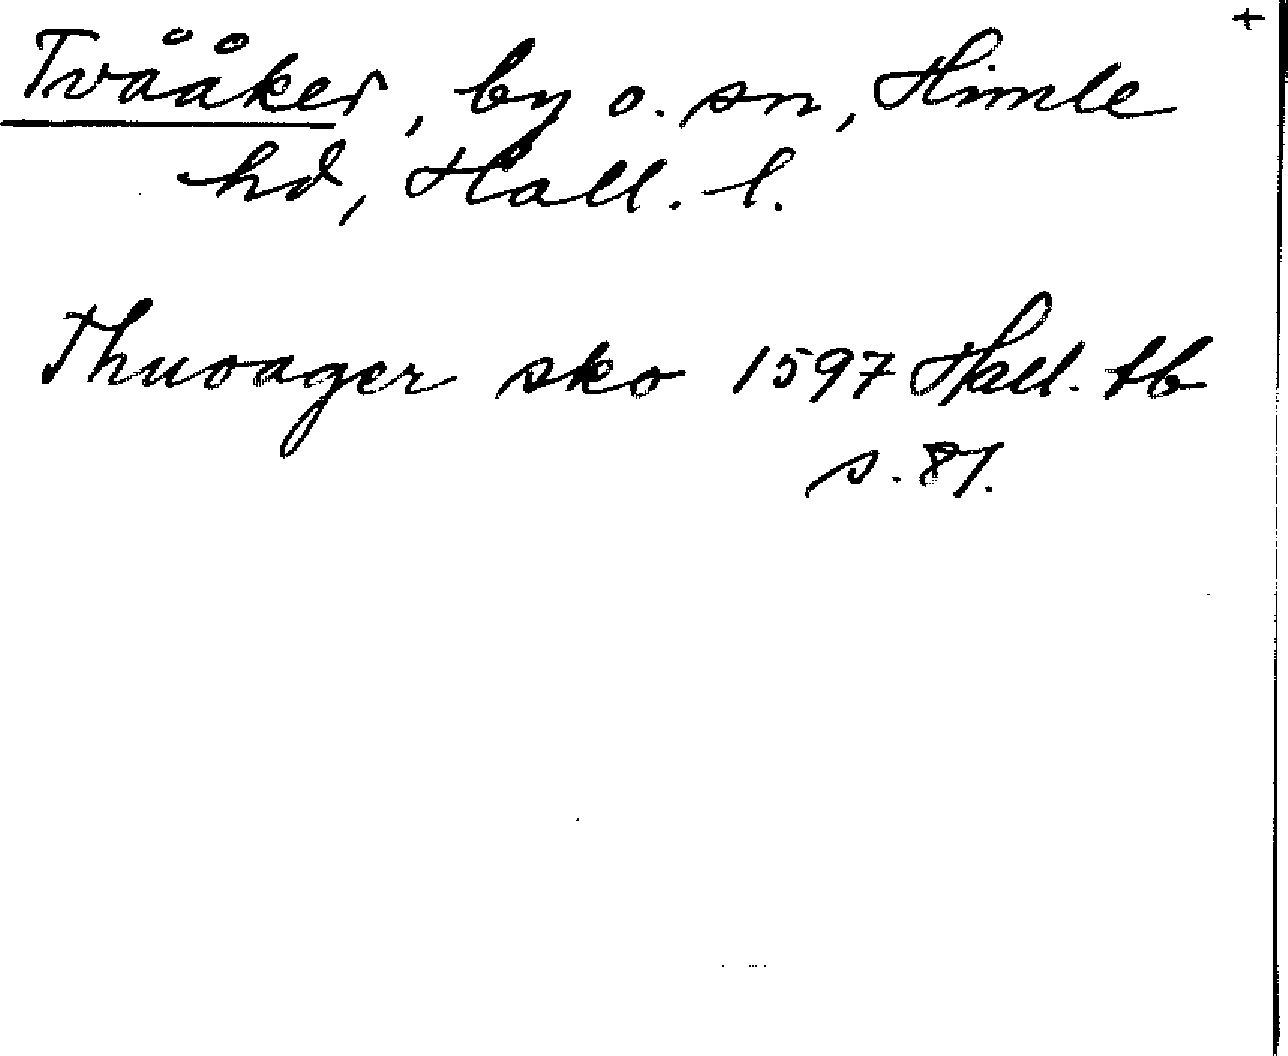 +
Tvååker, by o. sn, Himle
hd, Hall. l.
Thuoager sko 1597 Hall. tb
s. 87.